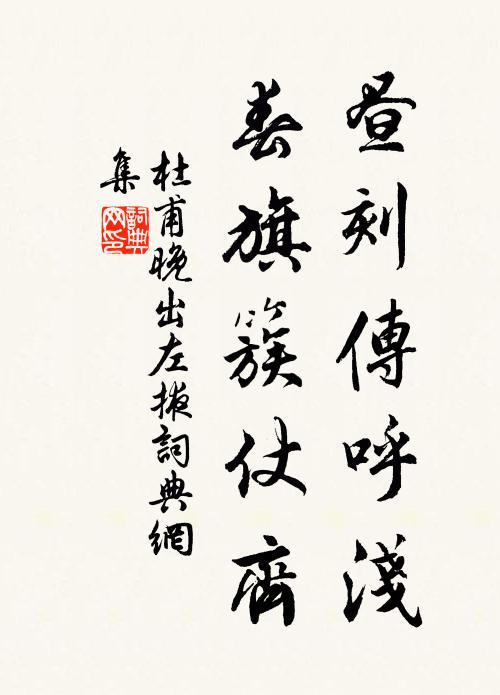 晝刻傳呼淺
春旗簇仗齊
杜甫晚出左掖詞典網
集
詞典网印